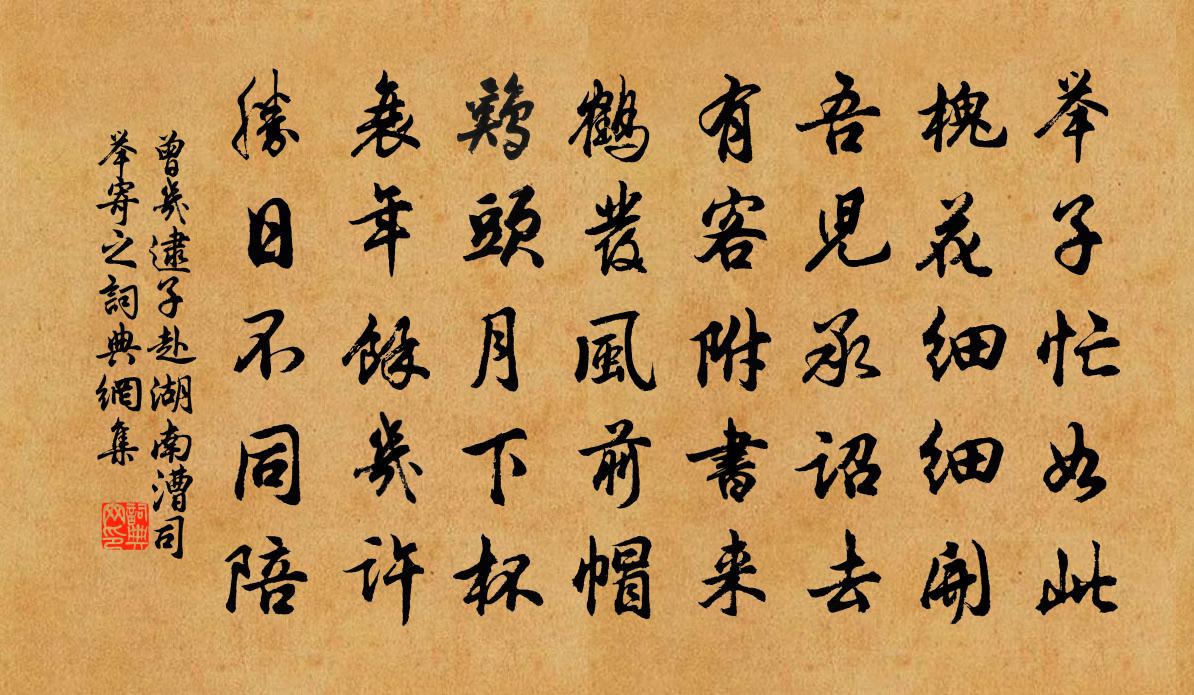 举子忙如此
槐花细细開
吾兒承詔去
有客附書来
鶴發風前帽
鷄頭月下杯
衰年餘幾許
勝日不同陪
曾幾逮子赴湖南漕司
举寄之詞典網集
詞典
网印